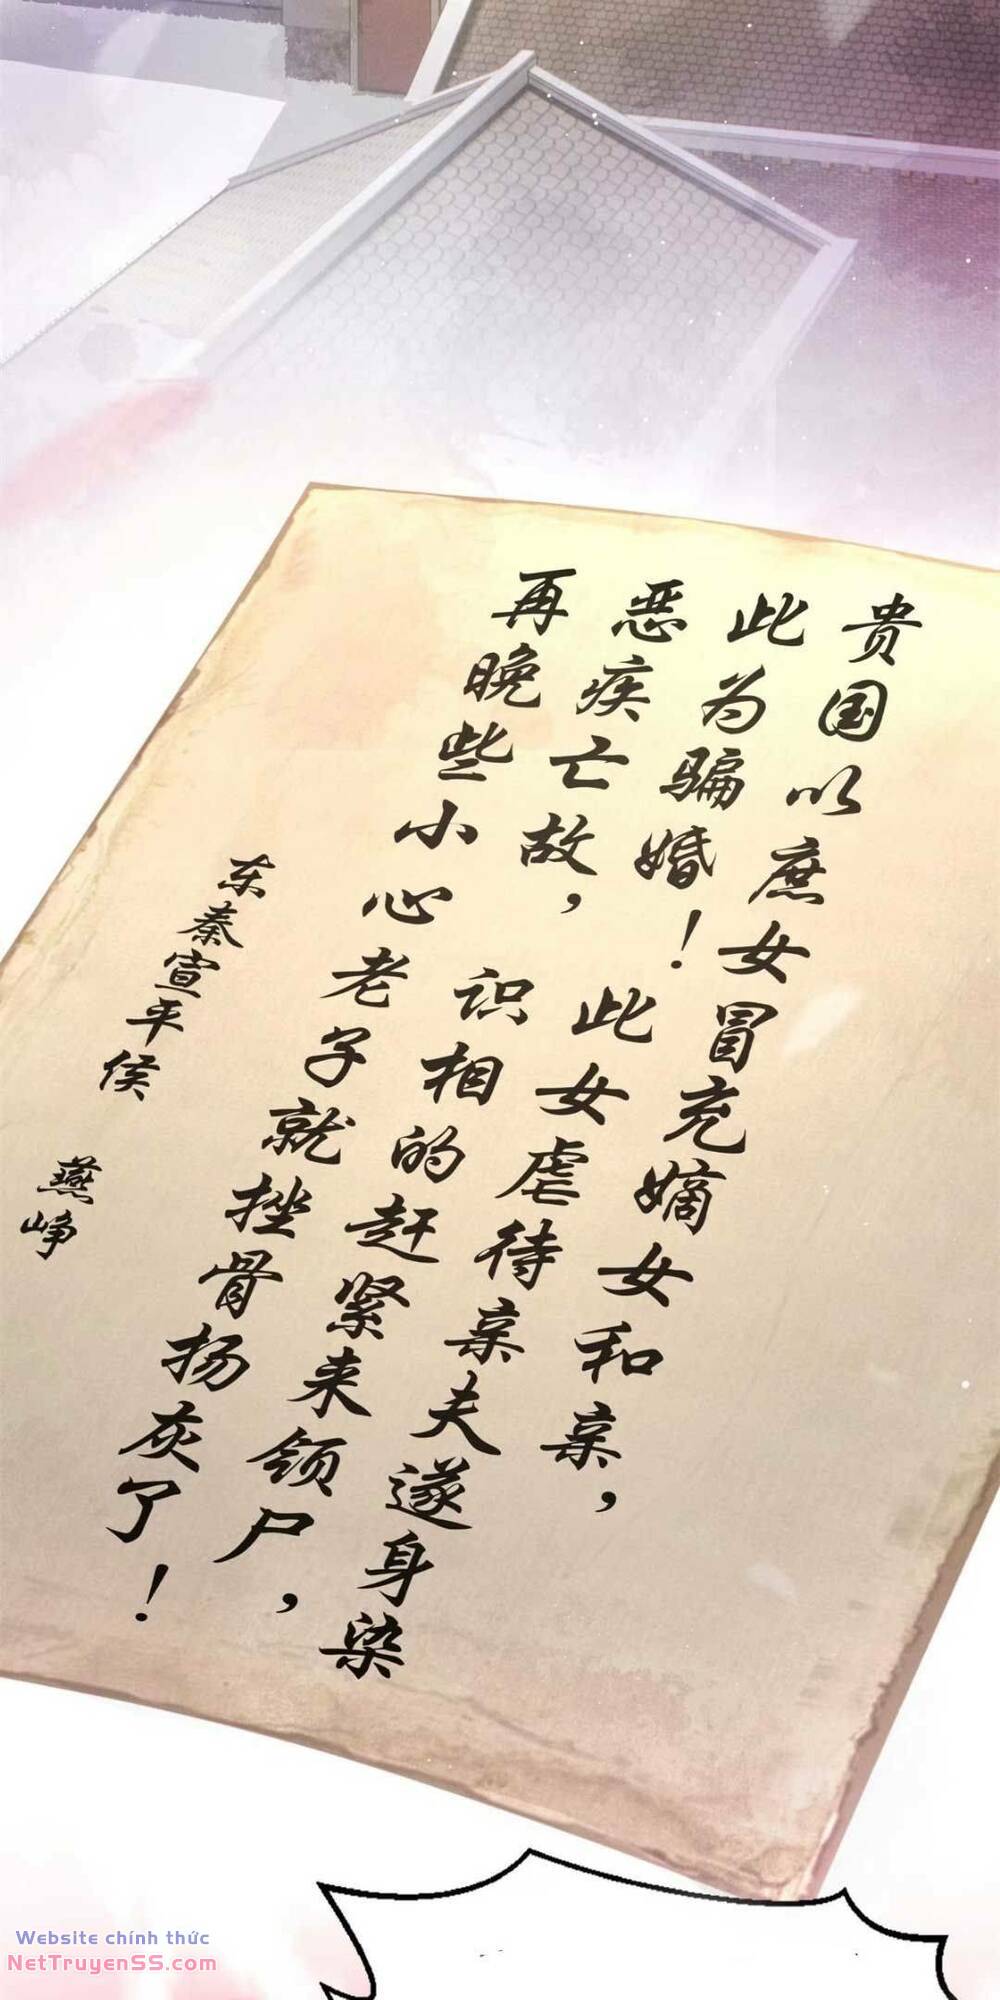 贵国以庶女冒充嫡女和亲，
此为骗婚！此女虐待亲夫遂身染
恶疾亡故，识相的赶紧来领尸，
再晚些小心老子就挫骨扬灰了！
东秦宣平侯 燕峥
Website chính thức
NetTruyenSS.com